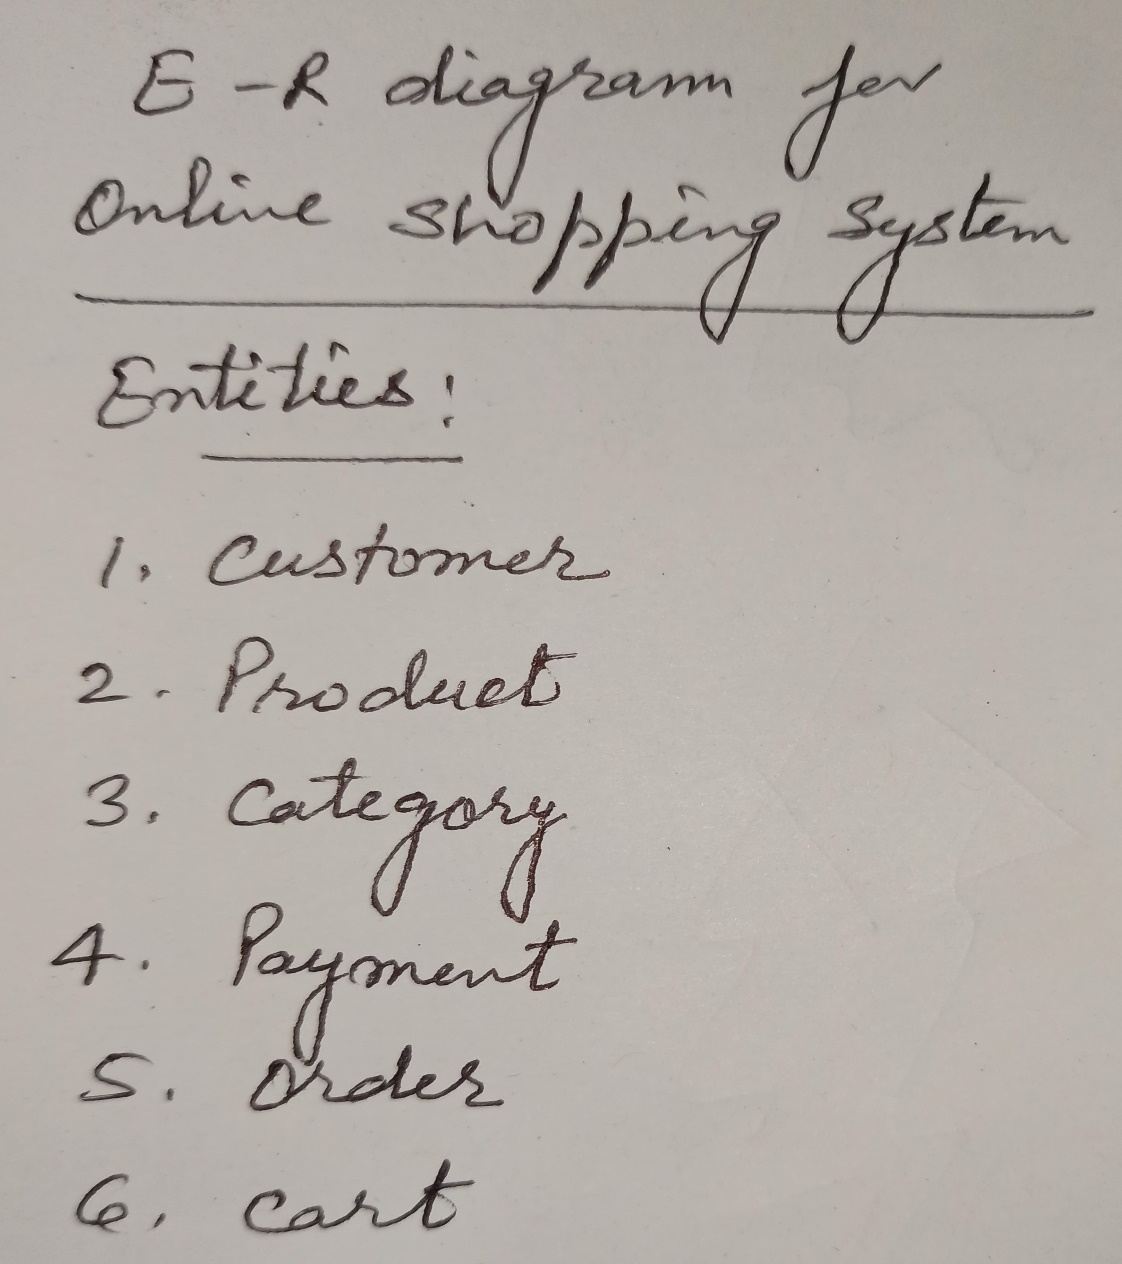 E-R diagram for
Online shopping system
Entities:
1. Customer
2. Product
3. Category
4. Payment
5. Order
6. Cart